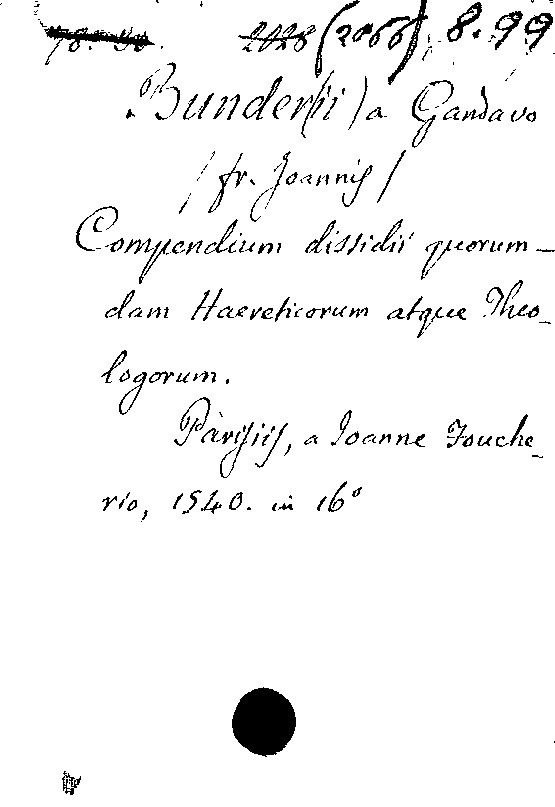 78. 30. 2028 (2066) 8.99
Bunder(ii) a Gandavo
/ fr. Joannis /
Compendium dissidii quorum-
dam Haereticorum atque Theo-
logorum.
Parisiis, a Joanne Fouche-
rio, 1540. in 16°